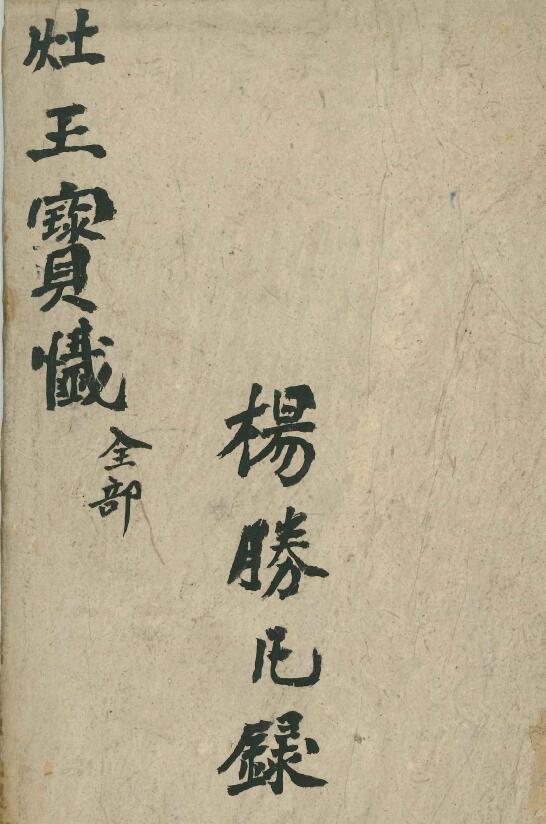 灶王寶懺
全部
楊勝錄